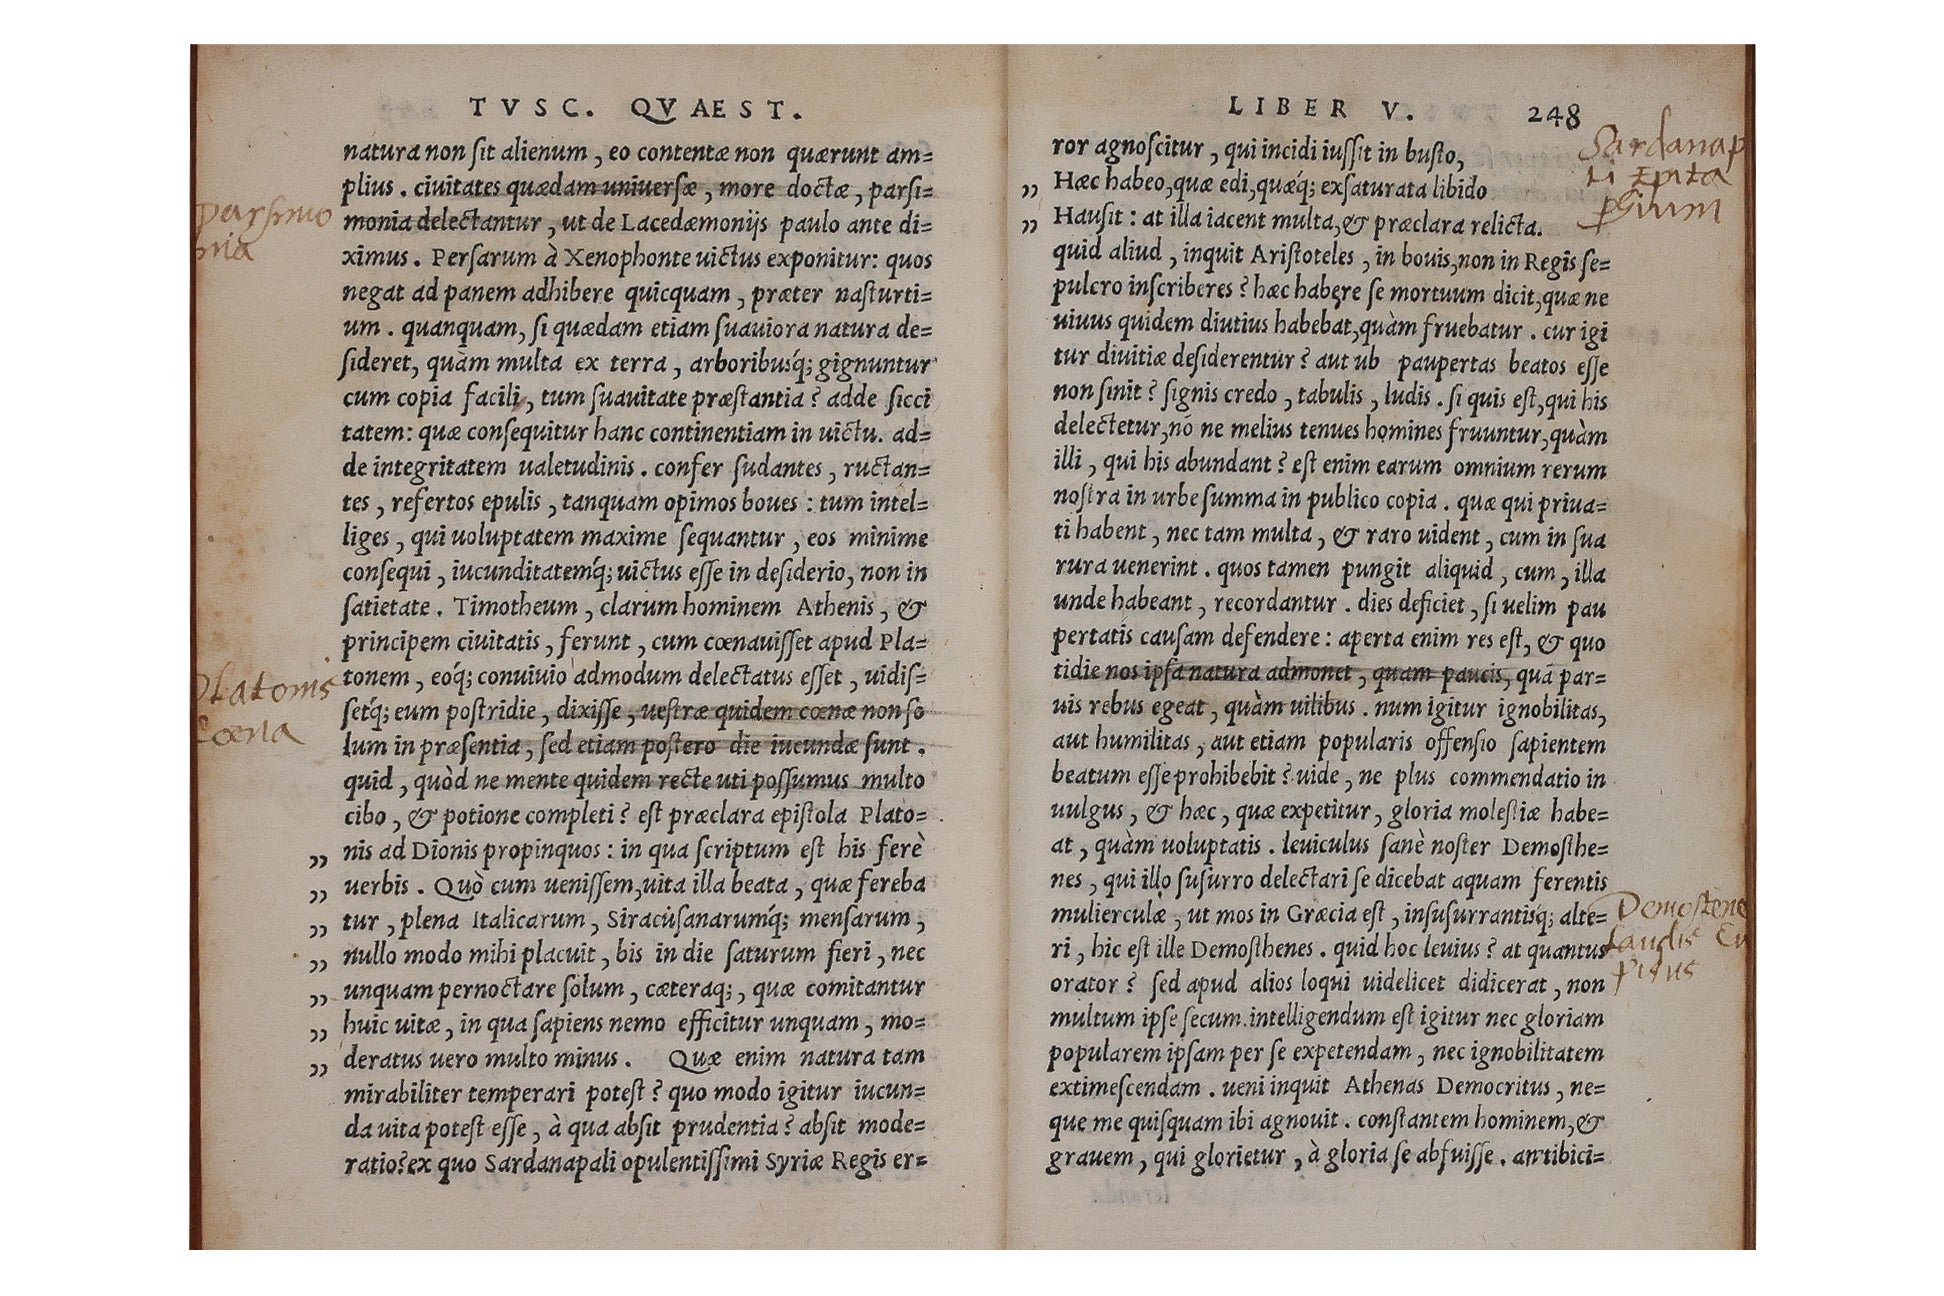 TVSC. QVAEST.
natura non ſit alienum, eo contentæ non quærunt am=
plius. ciuitates quædam uniuerſæ, more doctæ, parſi=
monia delectantur, ut de Lacedæmonijs paulo ante di=
ximus. Perſarum à Xenophonte uictus exponitur: quos
negat ad panem adhibere quicquam, præter naſturti=
um. quanquam, ſi quædam etiam ſuauiora natura de=
ſideret, quàm multa ex terra, arboribusq́; gignuntur
cum copia facili, tum ſuauitate præſtantia? adde ſicci
tatem: quæ conſequitur hanc continentiam in uictu. ad=
de integritatem ualetudinis. confer ſudantes, ructan=
tes, refertos epulis, tanquam opimos boues: tum intel=
liges, qui uoluptatem maxime ſequantur, eos minime
conſequi, iucunditatemq́; uictus eſſe in deſiderio, non in
ſatietate. Timotheum, clarum hominem Athenis, &
principem ciuitatis, ferunt, cum cœnauiſſet apud Pla=
tonem, eoq́; conuiuio admodum delectatus eſſet, uidiſ=
ſetq́; eum poſtridie, dixiſſe, ueſtræ quidem cœnæ non ſo
lum in præſentia, ſed etiam poſtero die iucundæ ſunt.
quid, quòd ne mente quidem recte uti poſſumus multo
cibo, & potione completi? eſt præclara epiſtola Plato=
„ nis ad Dionis propinquos: in qua ſcriptum eſt his ferè
„ uerbis. Quò cum ueniſſem, uita illa beata, quæ fereba
„ tur, plena Italicarum, Siracuſanarumq́; menſarum,
„ nullo modo mihi placuit, bis in die ſaturum fieri, nec
„ unquam pernoctare ſolum, cæteraq;, quæ comitantur
„ huic uitæ, in qua ſapiens nemo efficitur unquam, mo=
„ deratus uero multo minus. Quæ enim natura tam
mirabiliter temperari poteſt? quo modo igitur iucun=
da uita poteſt eſſe, à qua abſit prudentia? abſit mode=
ratio? ex quo Sardanapali opulentiſſimi Syriæ Regis er=
Parſimo
nia
Platonis
Cœna
LIBER V. 248
ror agnoſcitur, qui incidi iuſſit in buſto,
„ Hæc habeo, quæ edi, quæq́; exſaturata libido
„ Hauſit: at illa iacent multa, & præclara relicta.
quid aliud, inquit Ariſtoteles, in bouis, non in Regis ſe=
pulcro inſcriberes? hæc habere ſe mortuum dicit, quæ ne
uiuus quidem diutius habebat, quàm fruebatur. cur igi
tur diuitiæ deſiderentur? aut ub paupertas beatos eſſe
non ſinit? ſignis credo, tabulis, ludis. ſi quis eſt, qui his
delectetur, nō ne melius tenues homines fruuntur, quàm
illi, qui his abundant? eſt enim earum omnium rerum
noſtra in urbe ſumma in publico copia. quæ qui priua=
ti habent, nec tam multa, & raro uident, cum in ſua
rura uenerint. quos tamen pungit aliquid, cum, illa
unde habeant, recordantur. dies deficiet, ſi uelim pau
pertatis cauſam defendere: aperta enim res eſt, & quo
tidie nos ipſa natura admonet, quam paucis, quā par=
uis rebus egeat, quàm uilibus. num igitur ignobilitas,
aut humilitas, aut etiam popularis offenſio ſapientem
beatum eſſe prohibebit? uide, ne plus commendatio in
uulgus, & hæc, quæ expetitur, gloria moleſtiæ habe=
at, quàm uoluptatis. leuiculus ſanè noſter Demoſthe=
nes, qui illo ſuſurro delectari ſe dicebat aquam ferentis
mulierculæ, ut mos in Græcia eſt, inſuſurrantisq́; alte=
ri, hic eſt ille Demoſthenes. quid hoc leuius? at quantus
orator? ſed apud alios loqui uidelicet didicerat, non
multum ipſe ſecum. intelligendum eſt igitur nec gloriam
popularem ipſam per ſe expetendam, nec ignobilitatem
extimeſcendam. ueni inquit Athenas Democritus, ne=
que me quiſquam ibi agnouit. conſtantem hominem, &
grauem, qui glorietur, à gloria ſe abfuiſſe. an tibici=
Sardanap
li Epita
phium
Demoſtene
laudis Cu
pidus